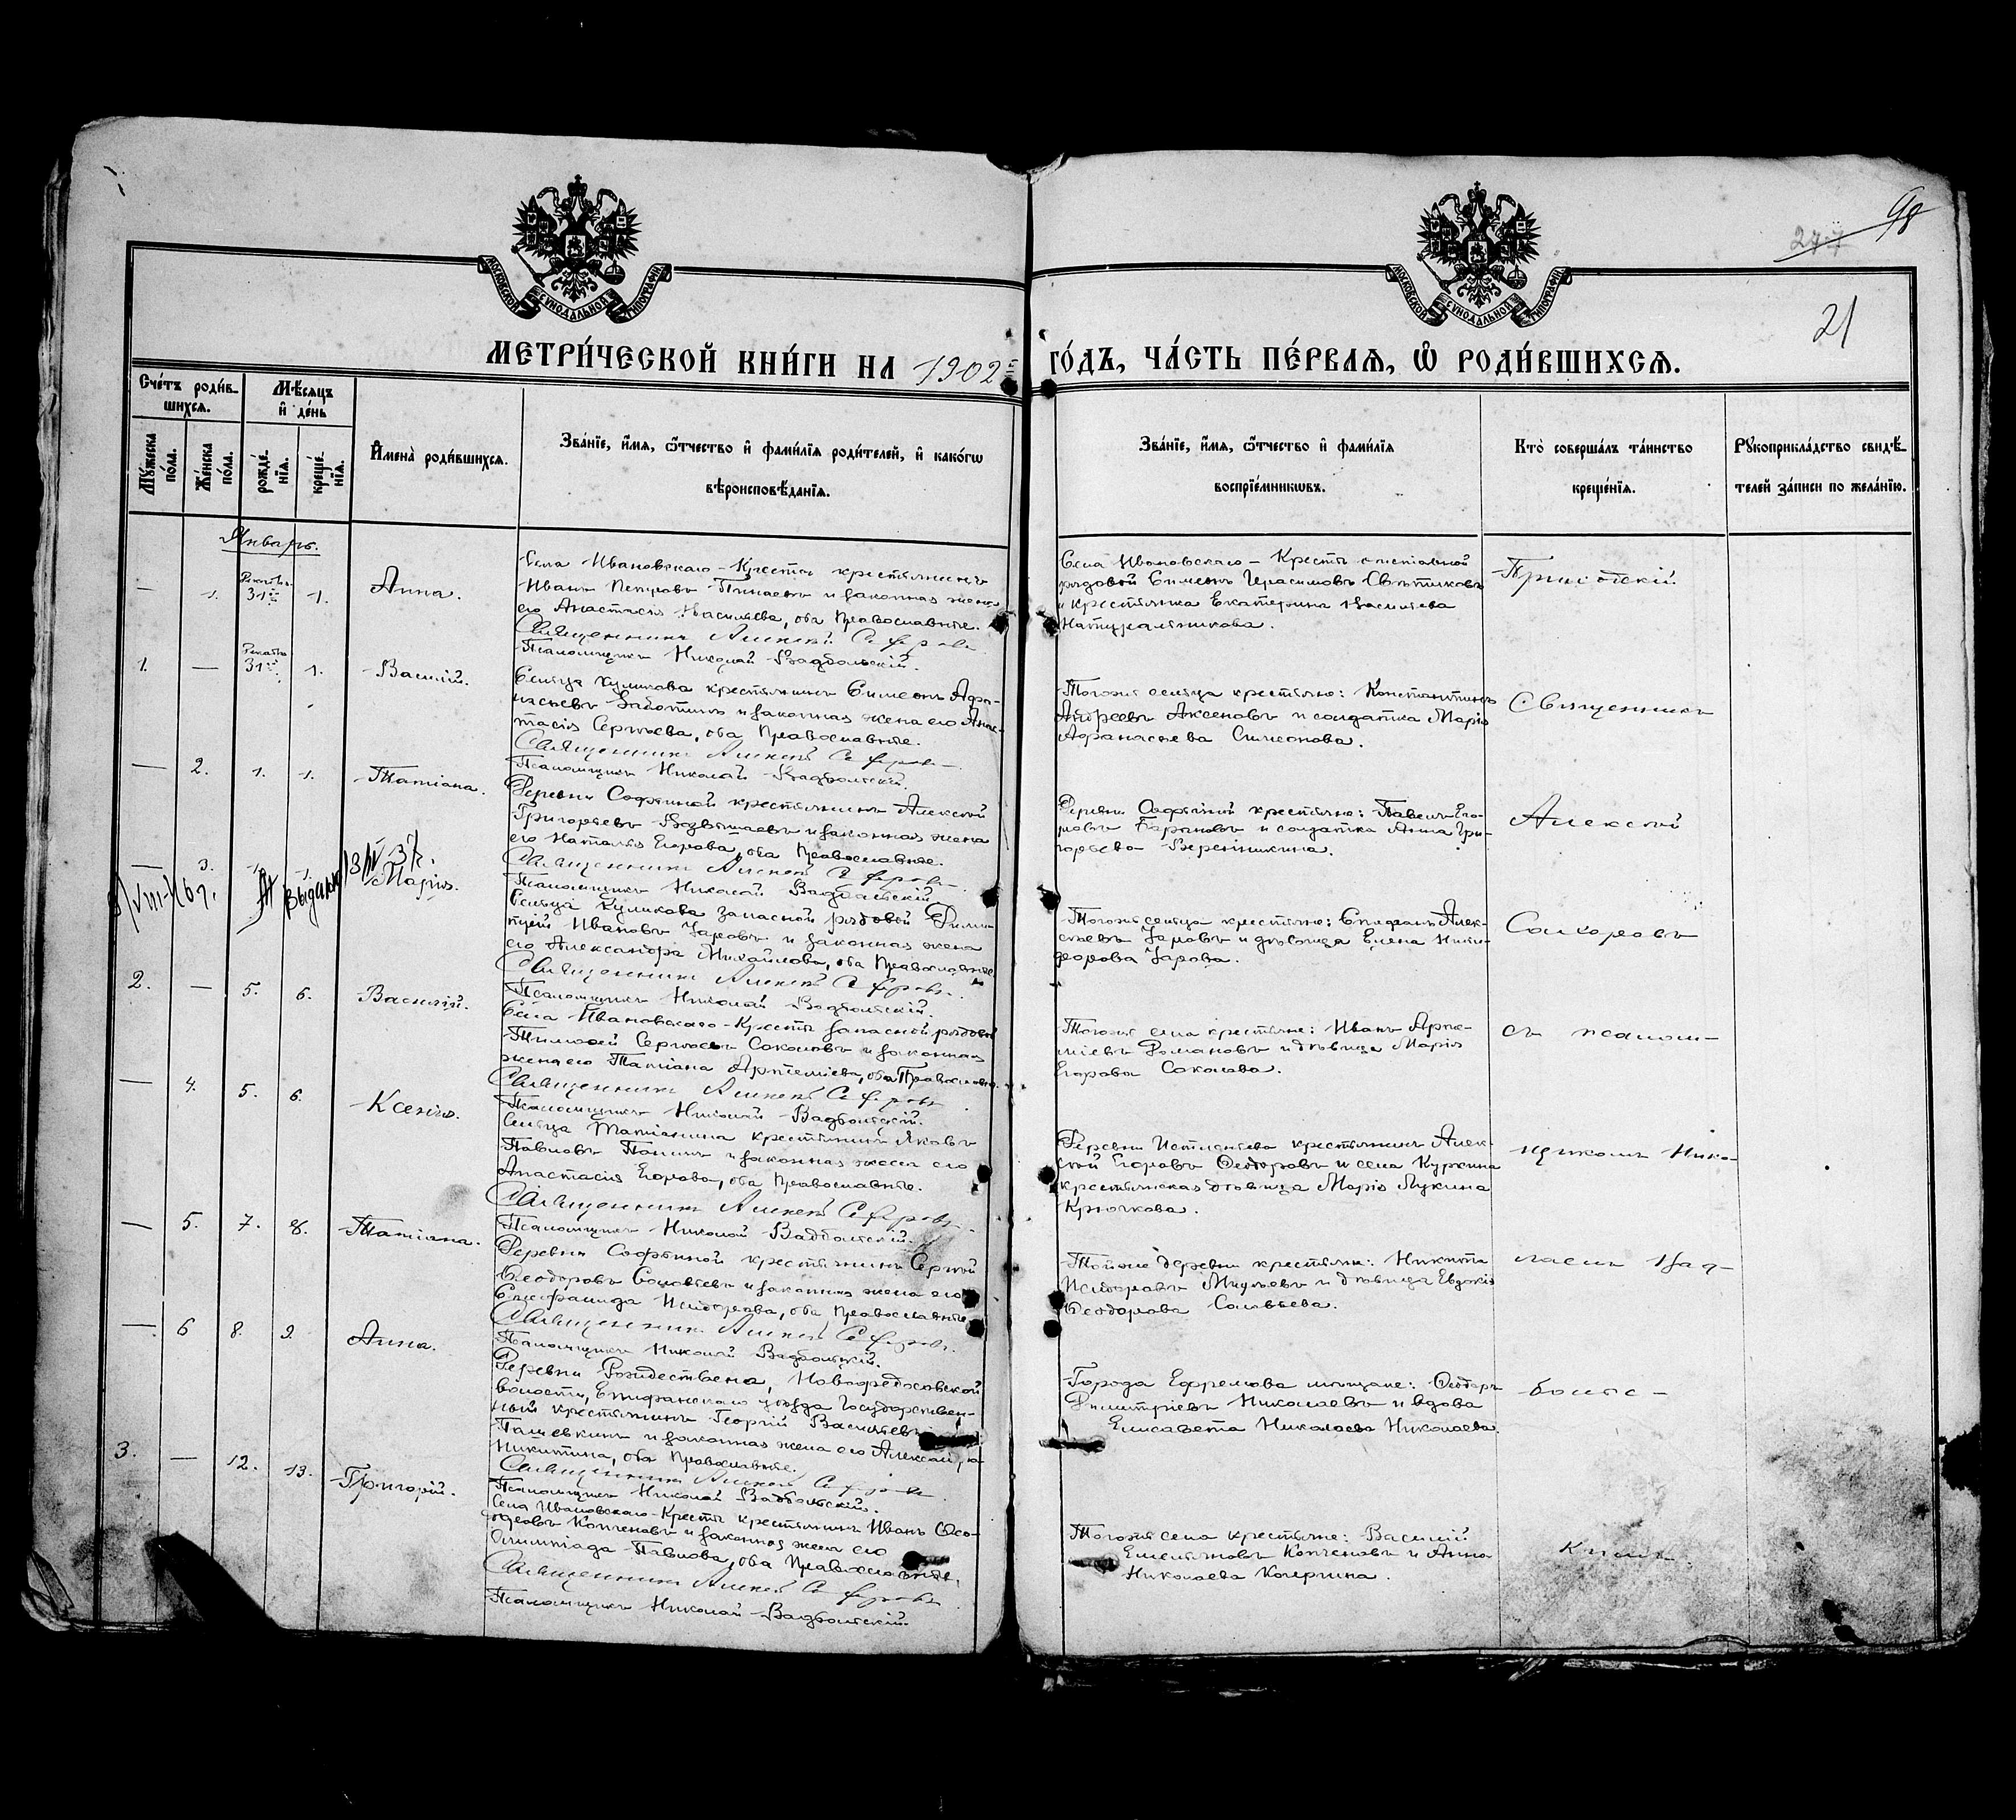 98
277
21
МОСКОВСКОЙ СУНОДАЛЬНОЙ ТИПОГРАФІИ
МОСКОВСКОЙ СУНОДАЛЬНОЙ ТИПОГРАФІИ
МЕТРИ́ЧЕСКОЙ КНИ́ГИ НА 1902 го́дъ, ЧА́СТЬ ПЕ́РВАЯ, Ѡ РОДИ́ВШИХСЯ.
Сче́тъ роди́в-
шихся.
Мѣ́сяцъ
и де́нь
Му́жеска по́ла.
Же́нска по́ла.
рожде́нїя.
креще́нїя.
Имена̀ роди́вшихся.
Зва́нїе, и́мя, ѻ́тчество и фами́лїя роди́телей, и како́гѡ
вѣроисповѣ́данїя.
Зва́нїе, и́мя, ѻ́тчество и фами́лїя
воспрїе́мникѡвъ.
Кто̀ соверша́лъ та́инство
креще́нїя.
Рꙋкоприкла́дство свидѣ́-
телей за́писи по жела́нїю.
Январь.
— 1. Декабря 31 1. Анна.
Села Ивановскаго-Кресты крестьянинъ
Иванъ Петровъ и законная жена
его Анастасія Васильева, оба Православные.
Священникъ Алексѣй
Псаломщикъ Николай Вадбольскій.
Села Ивановскаго-Кресты
рядовой Симеонъ Герасимовъ
и крестьянка Екатерина Васильева
Натуральникова.
Приходскій
1. — Декабря 31 1. Василій.
Сельца Куликова крестьянинъ Симеонъ Афа-
насьевъ и законная жена его Анас-
тасія Сергѣева, оба Православные.
Священникъ Алексѣй
Псаломщикъ Николай Вадбольскій.
Тогоже сельца крестьяне: Константинъ
Андреевъ Аксеновъ и солдатка Марія
Афанасьева Симонова.
Священникъ
— 2. 1. 1. Татіана.
Деревни Софьиной крестьянинъ Алексѣй
Григорьевъ и законная жена
его Наталія Егорова, оба Православные.
Священникъ Алексѣй
Псаломщикъ Николай Вадбольскій.
Деревни Софьиной крестьяне: Павелъ Его-
ровъ Барановъ и солдатка Анна Гри-
горьева
Алексѣй
— 3. 1. 1. Марія.
выдано 13/IV 37.
Сельца Куликова запасной рядовой Дими-
трій Ивановъ Заровъ и законная жена
его Александра Михайлова, оба Православные
Священникъ Алексѣй
Псаломщикъ Николай Вадбольскій.
Тогоже сельца крестьяне: Алек-
сѣевъ Заровъ и дѣвица Елена
Зарова.
2. — 5. 6. Василій.
Села Ивановскаго-Кресты запасной рядовой
Тимофей Сергѣевъ Соколовъ и законная
жена его Татіана Артеміева, оба Православные.
Священникъ Алексѣй
Псаломщикъ Николай Вадбольскій.
Тогоже села крестьяне: Иванъ Арте-
міевъ Романовъ и дѣвица Марія
Егорова Соколова.
съ псалом-
— 4. 5. 6. Ксенія.
Сельца Татіанина крестьянинъ Яковъ
Павловъ и законная жена его
Анастасія Егорова, оба Православные.
Священникъ Алексѣй
Псаломщикъ Николай Вадбольскій.
Деревни крестьянинъ Алек-
сѣй Егоровъ Ѳеодоровъ и села Куркина
крестьянская дѣвица Марія Лукина
Крючкова.
щикомъ Нико-
— 5. 7. 8. Татіана.
Деревни Софьиной крестьянинъ Сергѣй
Ѳеодоровъ Соловьевъ и законная жена его
оба Православные
Священникъ Алексѣй
Псаломщикъ Николай Вадбольскій.
Тойже деревни крестьяне: Никита
и дѣвица Евдокія
Ѳеодорова Соловьева.
лаемъ Вад-
— 6 8. 9. Анна.
Деревни Рождествена, Новофедосовской
волости, Епифанскаго уѣзда Государствен-
ный крестьянинъ Георгій Васильевъ
и законная жена его Александра
Никитина, оба Православные.
Священникъ Алексѣй
Псаломщикъ Николай Вадбольскій.
Города Ефремова мѣщане: Ѳеодоръ
Димитріевъ Николаевъ и вдова
Елисавета Николаева Николаева.
больс-
3. — 12. 13. Григорій.
Села Ивановскаго-Кресты крестьянинъ Иванъ Ѳео-
доровъ Копченовъ и законная жена его
Олимпіада Павлова, оба Православные.
Священникъ Алексѣй
Псаломщикъ Николай Вадбольскій.
Тогоже села крестьяне: Василій
Емельяновъ Копченовъ и Анна
Николаева Кочергина.
кимъ.